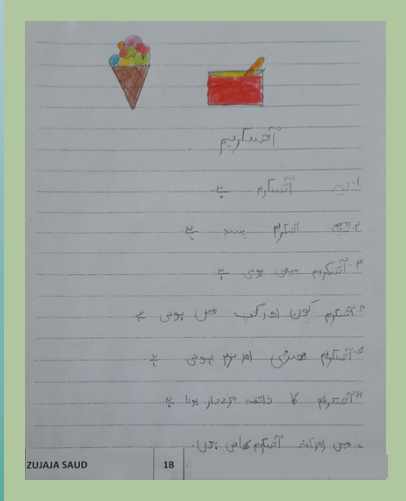 آئسکریم
۱۔ یہ آئسکریم ہے۔
۲۔ مجھے آئسکریم پسند ہے۔
۳۔ آئسکریم میٹھی ہوتی ہے۔
۴۔ آئسکریم کون اور کپ میں ہوتی ہے
۵۔ آئسکریم ٹھنڈی اور نرم ہوتی ہے۔
۶۔ آئسکریم کا ذائقہ مزےدار ہوتا ہے
۷۔ میں روزانہ آئسکریم کھاتی ہوں۔
ZUJAJA SAUD 1B